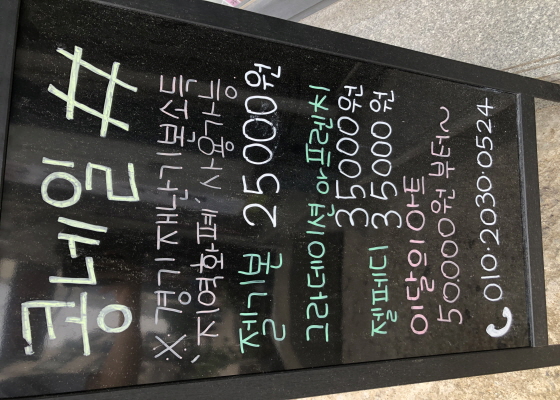 콩네일#
※ 경기재난기본소득
지역화폐, 사용가능
젤기본 25000원
그라데이션 아프렌치
35000원
젤페디 35000원
이달의아트
50.000원 부터~
010·2030·0524